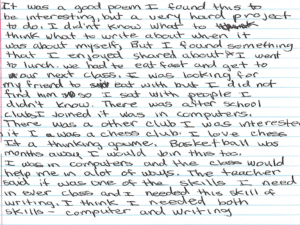 It was a good poem I found this to
be interesting, but a very hard project
to do. I didn't know what to
think what to write about when it
was about myself, But I found something
that I enjoyed shared about I went
to lunch. we had to eat fast and get to
our next class. I was looking for
my friend to eat with but I did not
find him so I sat with people I
didn't know. There was after school
clubs Joined it was in computers.
There was a other club I was interested
it I was a chess club. I love chess
It a thinking gaume. Basketball was
months away I would join this too.
I was in computers and the class would
help me in alot of ways. The teacher
said it was one of the skills I need
in ever class and I needed this skill of
writing. I think I needed both
skills - computer and writing